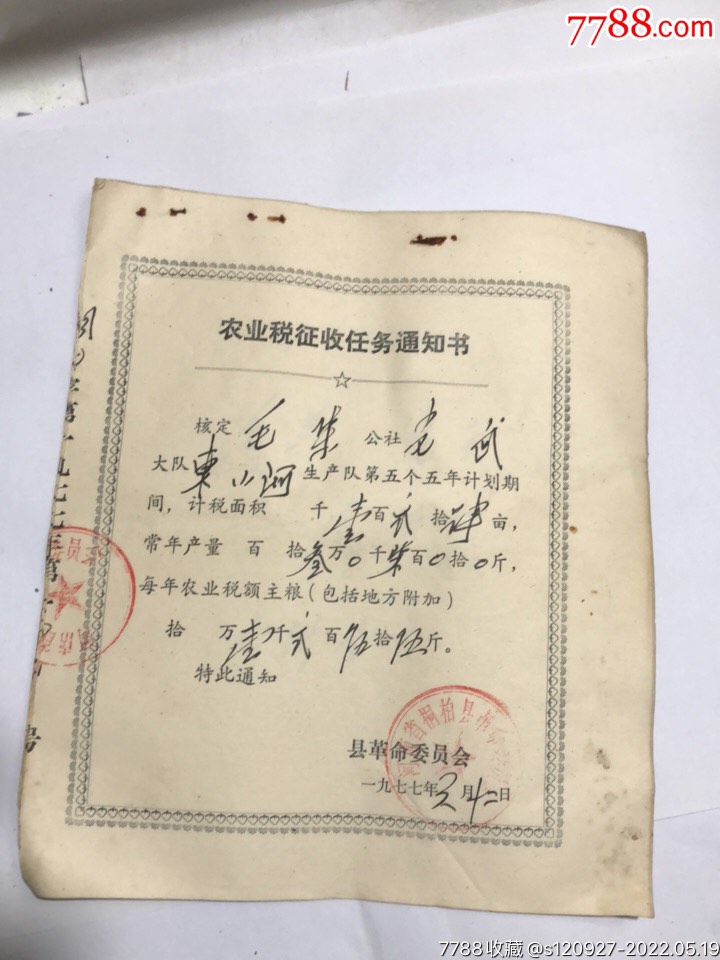 7788.com
农业税征收任务通知书
核定 毛集 公社 光武
大队 東小河 生产队第五个五年计划期
间，计税面积 千壹百贰拾肆亩，
常年产量 百 拾叁万0千柒百0拾0斤，
每年农业税额主粮（包括地方附加）
拾 万壹仟贰百伍拾伍斤。
特此通知
县革命委员会
一九七七年元月十二日
河南省桐柏县革命委员会
字第
号
7788收藏 @s120927-2022.05.19